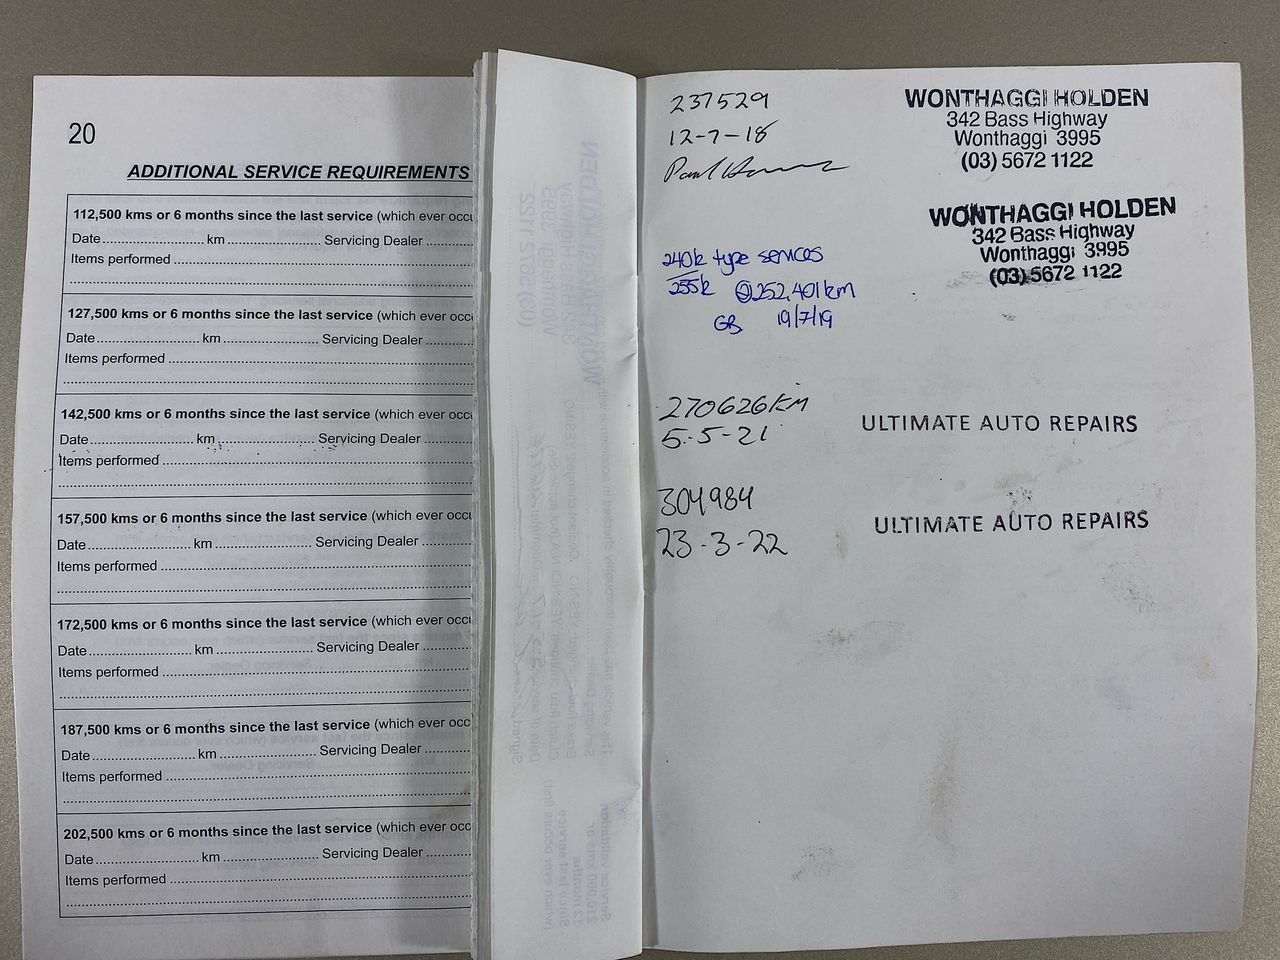 20
ADDITIONAL SERVICE REQUIREMENTS
112,500 kms or 6 months since the last service (which ever occu
Date.................... km.................... Servicing Dealer............
Items performed....................
127,500 kms or 6 months since the last service (which ever occ
Date.................... km.................... Servicing Dealer............
Items performed....................
142,500 kms or 6 months since the last service (which ever occu
Date.................... km.................... Servicing Dealer............
Items performed....................
157,500 kms or 6 months since the last service (which ever occu
Date.................... km.................... Servicing Dealer............
Items performed....................
172,500 kms or 6 months since the last service (which ever occu
Date.................... km.................... Servicing Dealer............
Items performed....................
187,500 kms or 6 months since the last service (which ever occ
Date.................... km.................... Servicing Dealer............
Items performed....................
202,500 kms or 6 months since the last service (which ever occ
Date.................... km.................... Servicing Dealer............
Items performed....................
237529
12-7-18
Paul
WONTHAGGI HOLDEN
342 Bass Highway
Wonthaggi 3995
(03) 5672 1122
WONTHAGGI HOLDEN
342 Bass Highway
Wonthaggi 3995
(03) 5672 1122
240k type services
255k @252,401km
GB 19/7/19
270626KM
5-5-21
ULTIMATE AUTO REPAIRS
304984
23-3-22
ULTIMATE AUTO REPAIRS